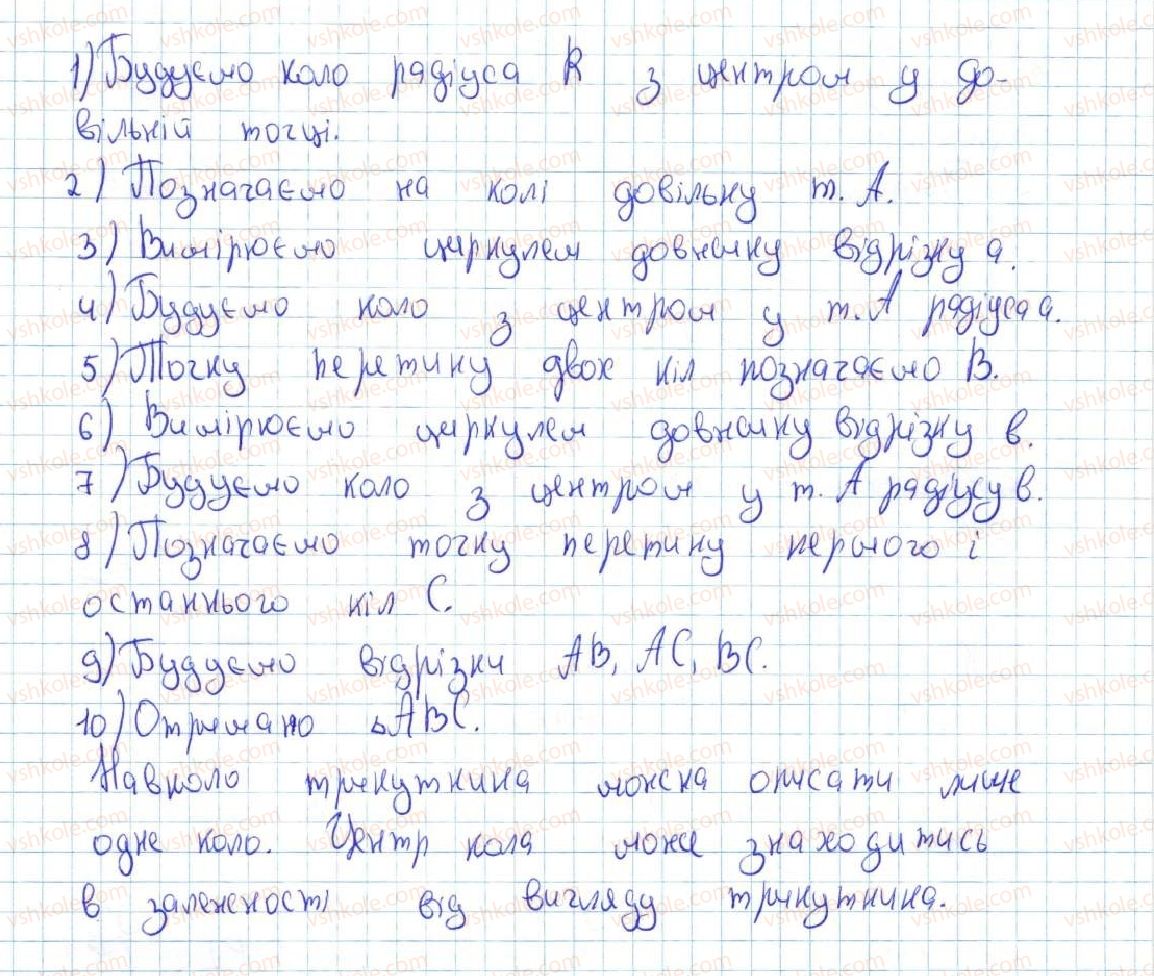 1) Будуємо коло радіуса R з центром у до-
вільній точці.
2) Позначаємо на колі довільну т. А.
3) Вимірюємо циркулем довжину відрізку а.
4) Будуємо коло з центром у т. А радіуса а.
5) Точку перетину двох кіл позначаємо В.
6) Вимірюємо циркулем довжину відрізку в.
7) Будуємо коло з центром у т. А радіусу в.
8) Позначаємо точку перетину першого і
останнього кіл С.
9) Будуємо відрізки АВ, АС, ВС.
10) Отримано △АВС.
Навколо трикутника можна описати лише
одне коло. Центр кола може знаходитись
в залежності від вигляду трикутника.
vshkole.com